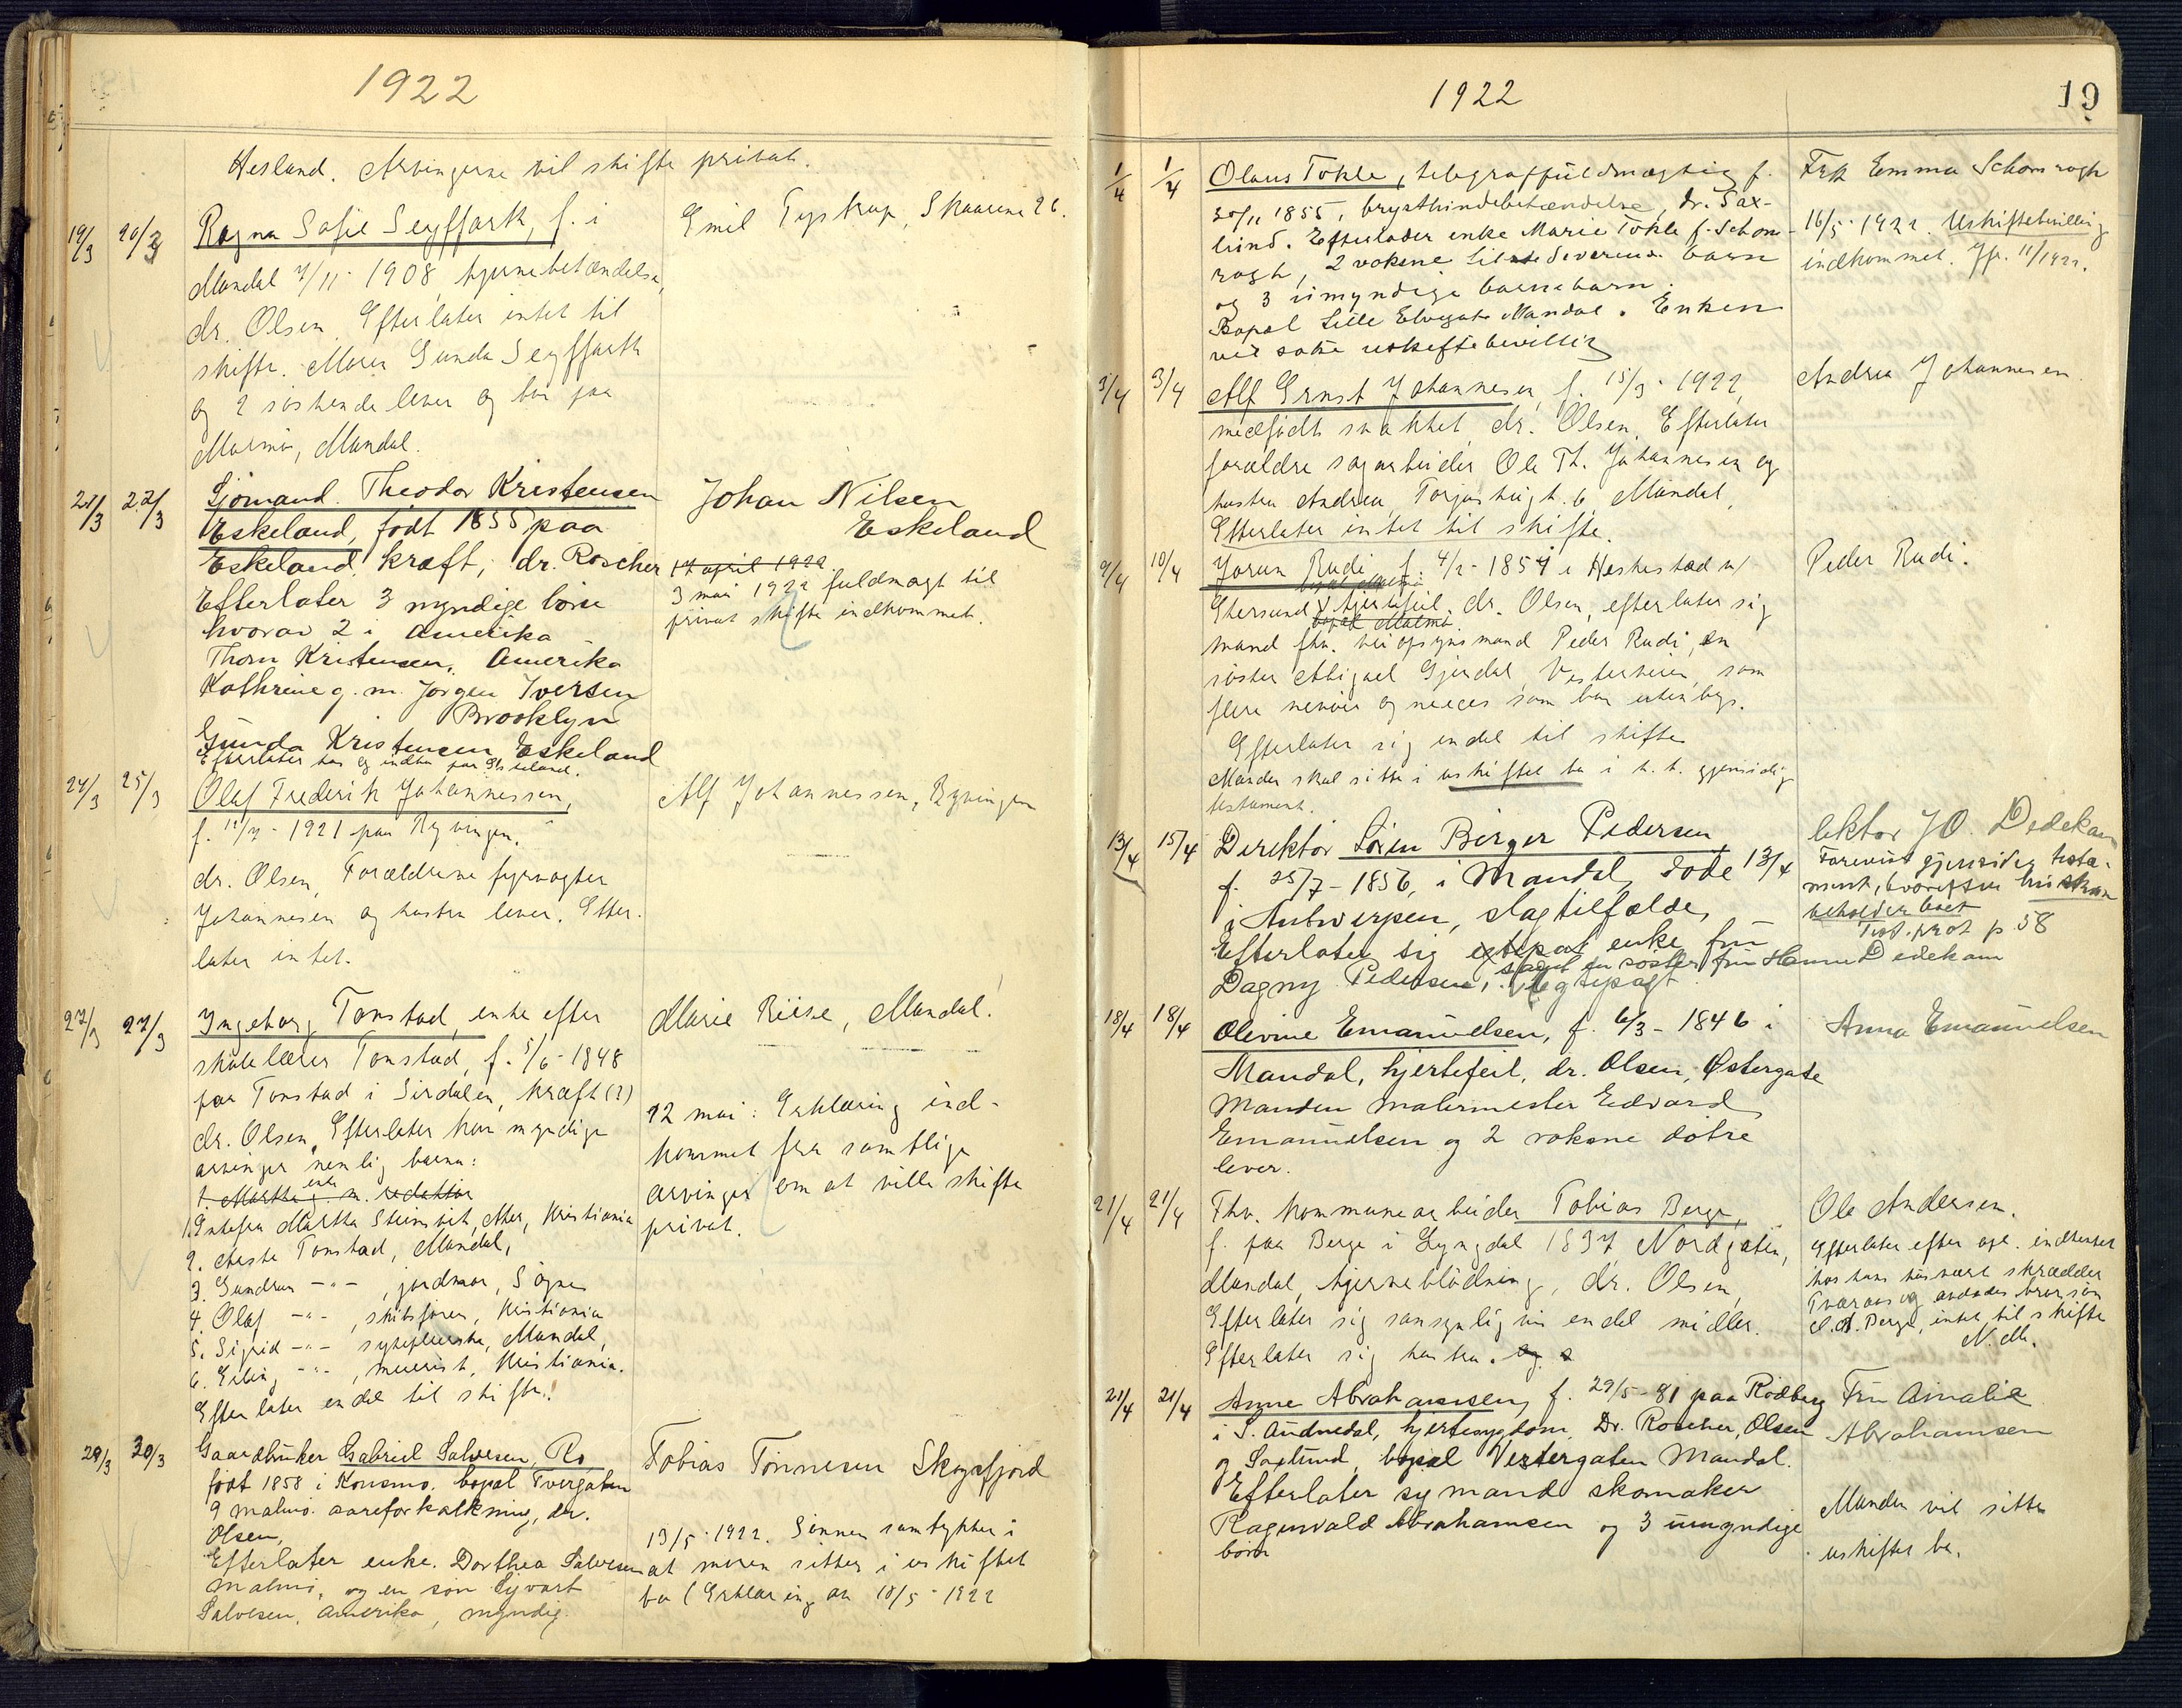 1922
Hesland. Arvingerne vil skifte privat.
19/3 20/3 Ragna Sofie Seyffarth, f. i
Mandal 7/11 - 1908, hjernebetændelse,
dr. Olsen. Efterlater intet til
skifte. Moren Gunda Seyffarth
og 2 søskende lever og bor paa
Malmø, Mandal.
Emil Tystrup, Skaarene 26.
21/3 22/3 Sjømand Theodor Kristensen
Eskeland, født 1855 paa
Eskeland, kræft, dr. Roscher
Efterlater 3 myndige børn
hvorav 2 i Amerika
Thorn Kristensen, Amerika
Kathrine g. m. Jørgen Iversen
Brooklyn
Gunda Kristensen Eskeland
Efterlater hus og indbo paa Eskeland.
Johan Nilsen
Eskeland
17 april 1922
3 mai 1922 fuldmagt til
privat skifte indkommet.
24/3 25/3 Olaf Frederik Johannessen,
f. 12/7 - 1921 paa Ryvingen.
dr. Olsen, Forældrene fyrvogter
Johannesen og hustru lever. Efter-
later intet.
Alf Johannessen, Ryvingen
27/3 27/3 Ingeborg Tonstad, enke efter
skolelærer Tonstad, f. 5/6 - 1848
paa Tonstad i Sirdalen, kræft (?)
dr. Olsen. Efterlater kun myndige
arvinger nemlig barna:
1. Martha g. m. redaktør
enke
1. Enkefru Martha Steinsvik, Aker, Kristiania
2. Aaste Tonstad, Mandal,
3. Gundrun -"- , jordmor, Søgne
4. Olaf -"- , skibsfører, Kristiania
5. Sigrid -"- sykepleierske, Mandal,
6. Erling -"- , meierist, Kristiania.
Efterlater endel til skifte.
Marie Riise, Mandal.
12 mai: Erklæring ind-
kommet fra samtlige
arvinger om at ville skifte
privat.
29/3 30/3 Gaardbruker Gabriel Salvesen, Ro
født 1858 i Konsmo, bopæl Tvergaten
9 Malmø. aareforkalkning, dr.
Olsen,
Efterlater enke. Dorthea Salvesen
Malmø, og en søn Sjvart
Salvesen, Amerika, myndig.
Tobias Tønnesen Skogsfjord
13/5 - 1922. Sønnen samtykker i
at moren sitter i uskiftet
bo (Erklæring av 18/5 - 1922
1922
19
1/4 1/4 Olaus Tokle, telegraffuldmægtig f.
30/11 1855, brysthindebetændelse, dr. Sax-
lund. Efterlader enke Marie Tokle f. Schon-
rogh, 2 voksne barn
og 3 umyndige barnebarn.
Bopæl Lille Elvegate Mandal. Enken
vil søke uskiftebevilling
Frk Emma Schonrogh
16/5 - 1922. Uskiftebevilling
indkommet. Jfr. 11/1922.
3/4 3/4 Alf Ernst Johannesen, f. 15/3 - 1922,
medfødt svakhet, dr. Olsen, Efterlater
forældre sagarbeider Ole Th. Johannesen og
hustru Andrea, Torjushugt. 6, Mandal,
Efterlater intet til skifte.
Andrea Johannesen
9/4 10/4 Jorun Rudi, f. 4/2 - 1854 i Heskestad v/
bopæl Malmø
Ekersund, hjertefeil. dr. Olsen, efterlater sig
bopæl Malmø
mand fhv. veiopsynsmand Peder Rudi, en
søster Abigael Gjerdal, Vesterveien, som
flere nevøer og nieces som bor utenbys.
Efterlater sig endel til skifte
Manden skal sitte i uskiftet bo i h. t. gjensidig
testament.
Peder Rudi.
13/4 15/4 Direktør Søren Birger Pedersen,
f. 25/7 - 1856, i Mandal, døde 13/4
i Antwerpen, slagtilfælde,
Efterlater sig enke fru
Dagny Pedersen, samt en søster fru Hanna Dedekam
lektor J O. Dedekam
Forevist gjensidig testa-
ment, hvorefter hustruen
beholder boet
Test. prot p. 58
18/4 18/4 Olevine Emanuelsen, f. 6/3 - 1846 i
Mandal, hjertefeil, dr. Olsen, Østergate
Manden malermester Edvard
Emanuelsen og 2 voksne døtre
lever.
Anna Emanuelsen
21/4 21/4 Fhv. kommunearbeider Tobias Berge,
f. paa Berge i Lyngdal 1837 Nordgaten,
Mandal, hjerneblødning, dr. Olsen,
Efterlater sig sansynligvis endel midler.
Efterlater sig hustru. og
Ole Andersen.
Efterlater efter opl. indhentet
hos hans skrædder
og avdødes brorsøn
Berge, intet til skifte
N. M.
21/4 21/4 Anne Abrahamsen, f. 29/5 - 81 paa Rødberg
i S. Audnedal, hjertesygdom, Dr. Roscher, Olsen
og Saxlund, bopæl Vestergaten Mandal.
Efterlater sig mand skomaker
Ragnvald Abrahamsen og 3 umyndige
børn
Fru Amalie
Abrahamsen
Manden vil sitte
i uskiftet bo.